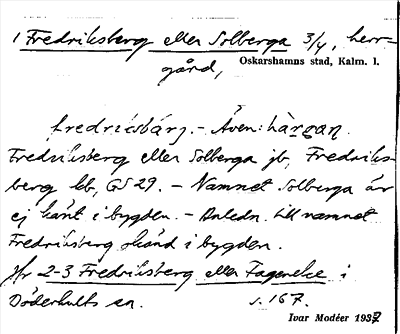 1 Fredriksberg eller Solberga 3/4, herr-
gård, Oskarshamns stad, Kalm. l.
fredriksbärj. - Även: härgan.
Fredriksberg eller Solberga jb, Fredriks-
berg kb, GS 29. - Namnet Solberga är
ej känt i bygden. - Anledn. till namnet
Fredriksberg okänd i bygden.
Jfr 2-3 Fredriksberg eller Fagereke i
Döderhults sn. s. 167.
Ivar Modéer 1937